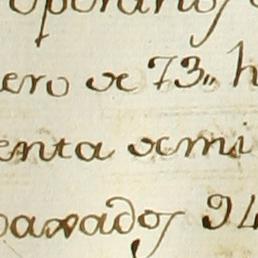 operarios
ero de 73,, h
enta de mi
baxados 94